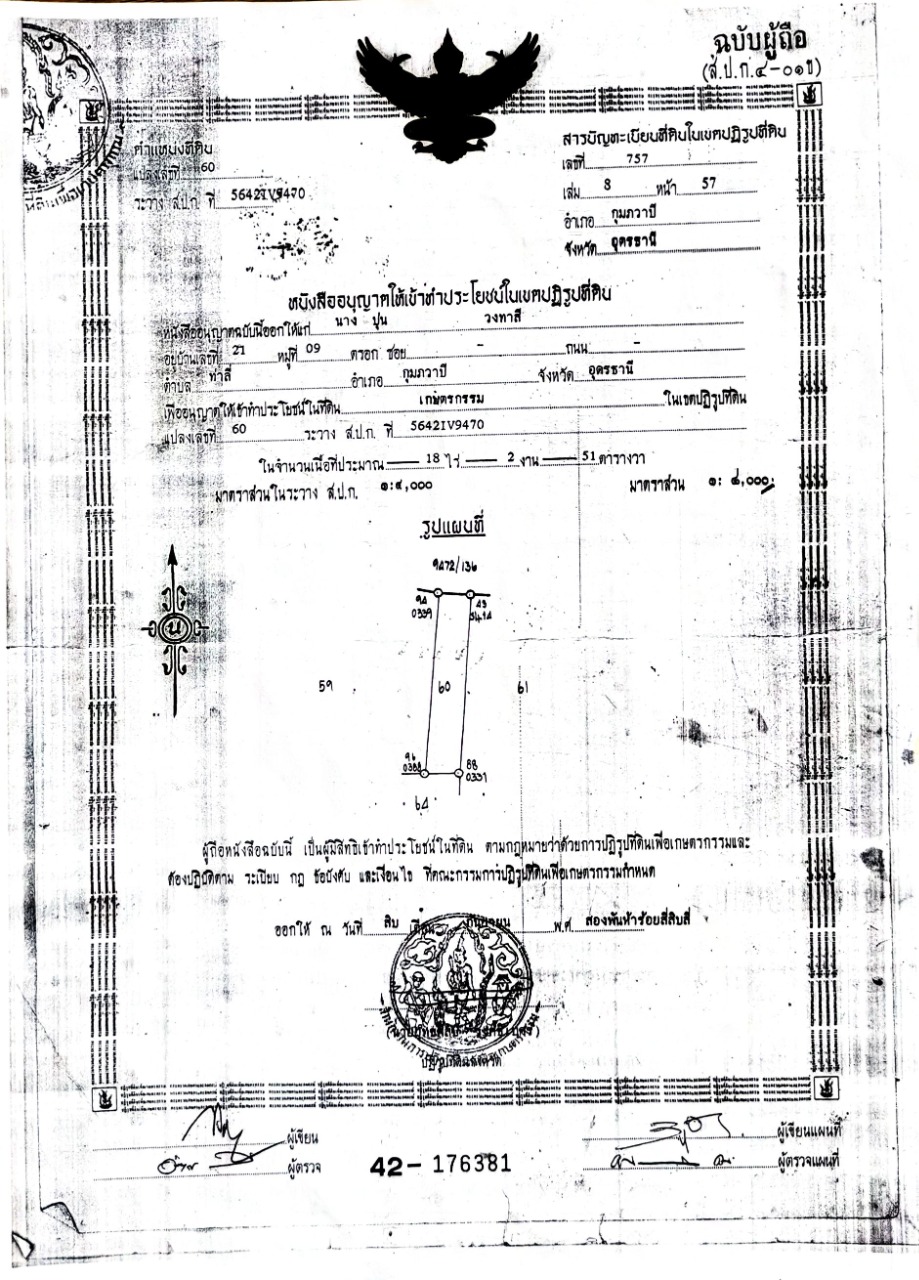 ฉบับผู้ถือ
(ส.ป.ก.๔-๐๑ข)
ตำแหน่งที่ดิน
แปลงเลขที่ 60
ระวาง ส.ป.ก. ที่ 5642IV9470
สารบัญทะเบียนที่ดินในเขตปฏิรูปที่ดิน
เลขที่ 757
เล่ม 8 หน้า 57
อำเภอ กุมภวาปี
จังหวัด อุดรธานี
หนังสืออนุญาตให้เข้าทำประโยชน์ในเขตปฏิรูปที่ดิน
หนังสืออนุญาตฉบับนี้ออกให้แก่ นาง ปุน วงทาสี
อยู่บ้านเลขที่ 21 หมู่ที่ 09 ตรอก ซอย - ถนน -
ตำบล ท่าลี่ อำเภอ กุมภวาปี จังหวัด อุดรธานี
เพื่ออนุญาตให้เข้าทำประโยชน์ในที่ดิน เกษตรกรรม ในเขตปฏิรูปที่ดิน
แปลงเลขที่ 60 ระวาง ส.ป.ก. ที่ 5642IV9470
ในจำนวนเนื้อที่ประมาณ 18 ไร่ 2 งาน 51 ตารางวา
มาตราส่วนในระวาง ส.ป.ก. ๑:๔,๐๐๐ มาตราส่วน ๑: ๘,๐๐๐
รูปแผนที่
9472/136
94 43
0339
น
59 60 61
96 88
0388 0331
64
ผู้ถือหนังสือฉบับนี้ เป็นผู้มีสิทธิเข้าทำประโยชน์ในที่ดิน ตามกฎหมายว่าด้วยการปฏิรูปที่ดินเพื่อเกษตรกรรมและ
ต้องปฏิบัติตาม ระเบียบ กฎ ข้อบังคับ และเงื่อนไข ที่คณะกรรมการปฏิรูปที่ดินเพื่อเกษตรกรรมกำหนด
ออกให้ ณ วันที่ สิบ เดือน กันยายน พ.ศ. สองพันห้าร้อยสี่สิบสี่
ปฏิรูปที่ดินจังหวัด
ผู้เขียน ผู้เขียนแผนที่
ผู้ตรวจ 42-176381 ผู้ตรวจแผนที่